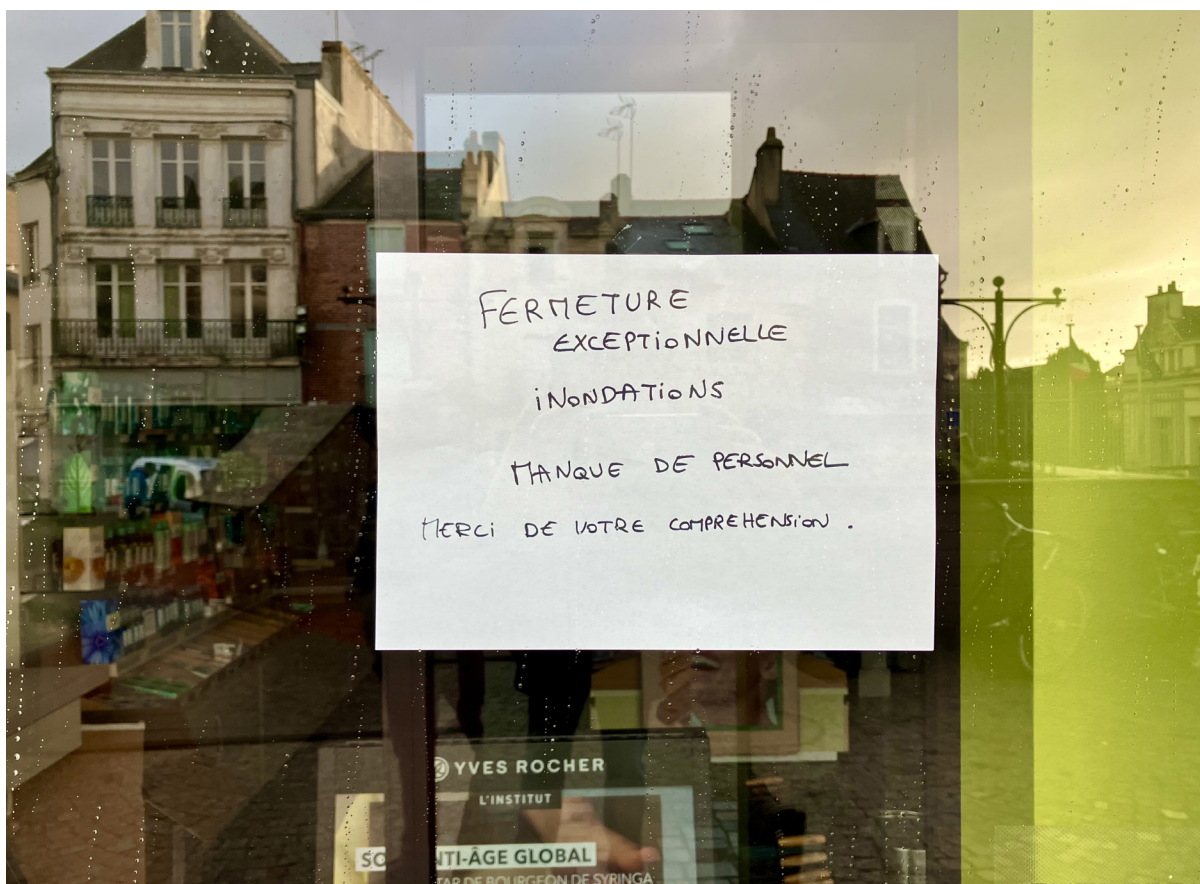 FERMETURE
EXCEPTiONNELLE
iNONDATiONS
MANQUE DE PERSONNEL
MERCi DE VOTRE COMPREHENSiON .
YVES ROCHER
L'INSTITUT
NTI-ÂGE GLOBAL
DE BOURGEON DE SYRINGA